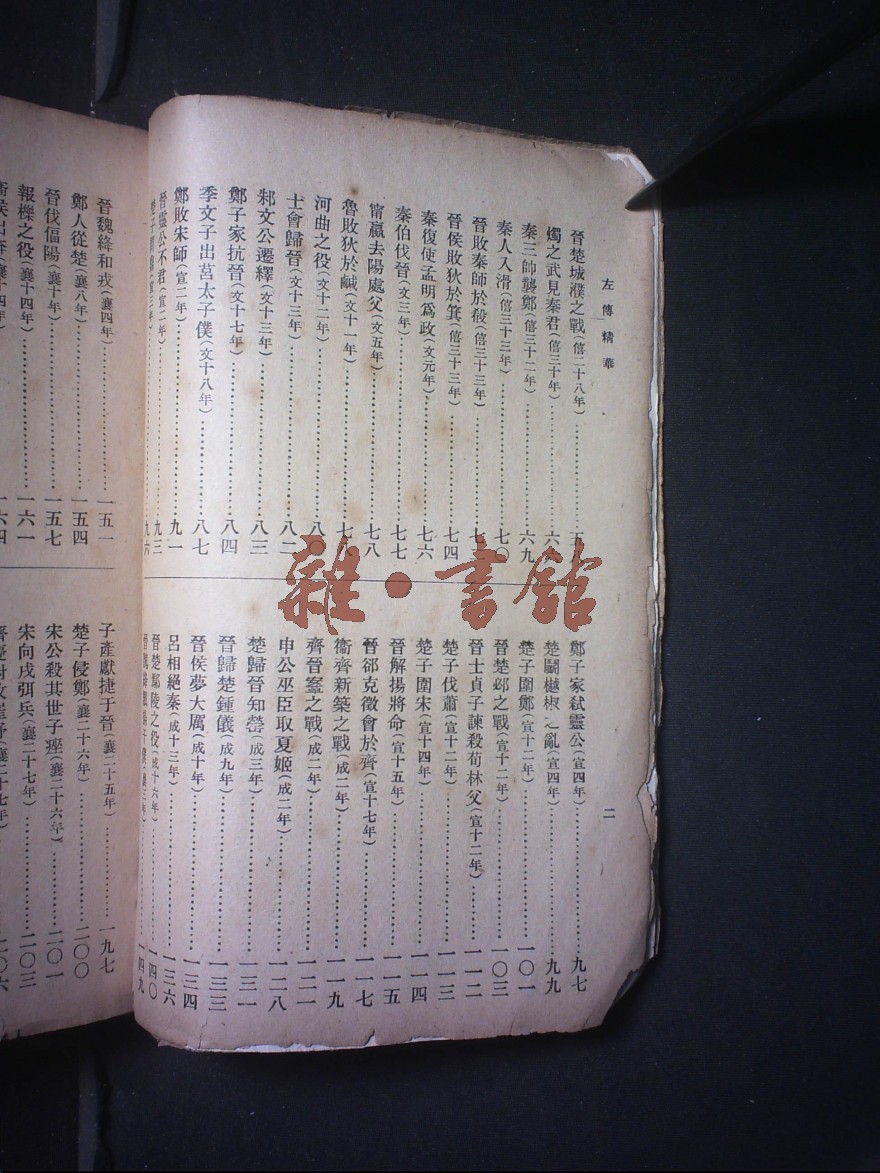 左傳精華
二
晉楚城濮之戰(僖二十八年)……五
燭之武見秦君(僖三十年)……六
秦三帥襲鄭(僖三十二年)……六九
秦人入滑(僖三十三年)……七〇
晉敗秦師於殽(僖三十三年)……七
晉侯敗狄於箕(僖三十三年)……七四
秦復使孟明爲政(文元年)……七六
秦伯伐晉(文三年)……七七
甯嬴去陽處父(文五年)……七八
魯敗狄於鹹(文十一年)……七九
河曲之役(文十二年)……八〇
士會歸晉(文十三年)……八二
邾文公遷繹(文十三年)……八三
鄭子家抗晉(文十七年)……八四
季文子出莒太子僕(文十八年)……八七
鄭敗宋師(宣二年)……九一
晉靈公不君(宣二年)……九三
楚子問鼎(宣三年)……九六
鄭子家弒靈公(宣四年)……九七
楚鬭樾椒之亂(宣四年)……九九
楚子圍鄭(宣十二年)……一〇一
晉楚邲之戰(宣十二年)……一〇三
晉士貞子諫殺荀林父(宣十二年)……一一二
楚子伐蕭(宣十二年)……一一三
楚子圍宋(宣十四年)……一一四
晉解揚將命(宣十五年)……一一五
晉郤克徵會於齊(宣十七年)……一一七
衞齊新築之戰(成二年)……一一九
齊晉鞌之戰(成二年)……一二一
申公巫臣取夏姬(成二年)……一二八
楚歸晉知罃(成三年)……一三一
晉歸楚鍾儀(成九年)……一三三
晉侯夢大厲(成十年)……一三四
呂相絕秦(成十三年)……一三六
晉楚鄢陵之役(成十六年)……一四〇
一四九
晉魏絳和戎(襄四年)……一五一
鄭人從楚(襄八年)……一五四
晉伐偪陽(襄十年)……一五七
報櫟之役(襄十四年)……一六一
衞侯出奔(襄十四年)……一六四
子產獻捷于晉(襄二十五年)……一九七
楚子侵鄭(襄二十六年)……二〇〇
宋公殺其世子痤(襄二十六年)……二〇一
宋向戌弭兵(襄二十七年)……二〇三
齊慶封攻崔杼(襄二十七年)……二〇六
雜·書館